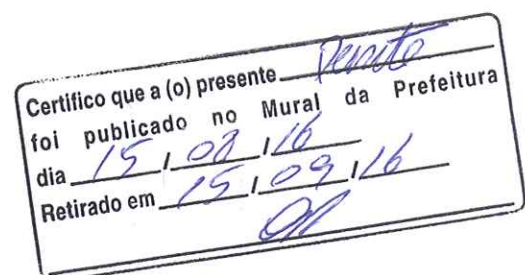 Certifico que a (o) presente
foi publicado no Mural da Prefeitura
dia 15 / 08 / 16
Retirado em 15 / 09 / 16